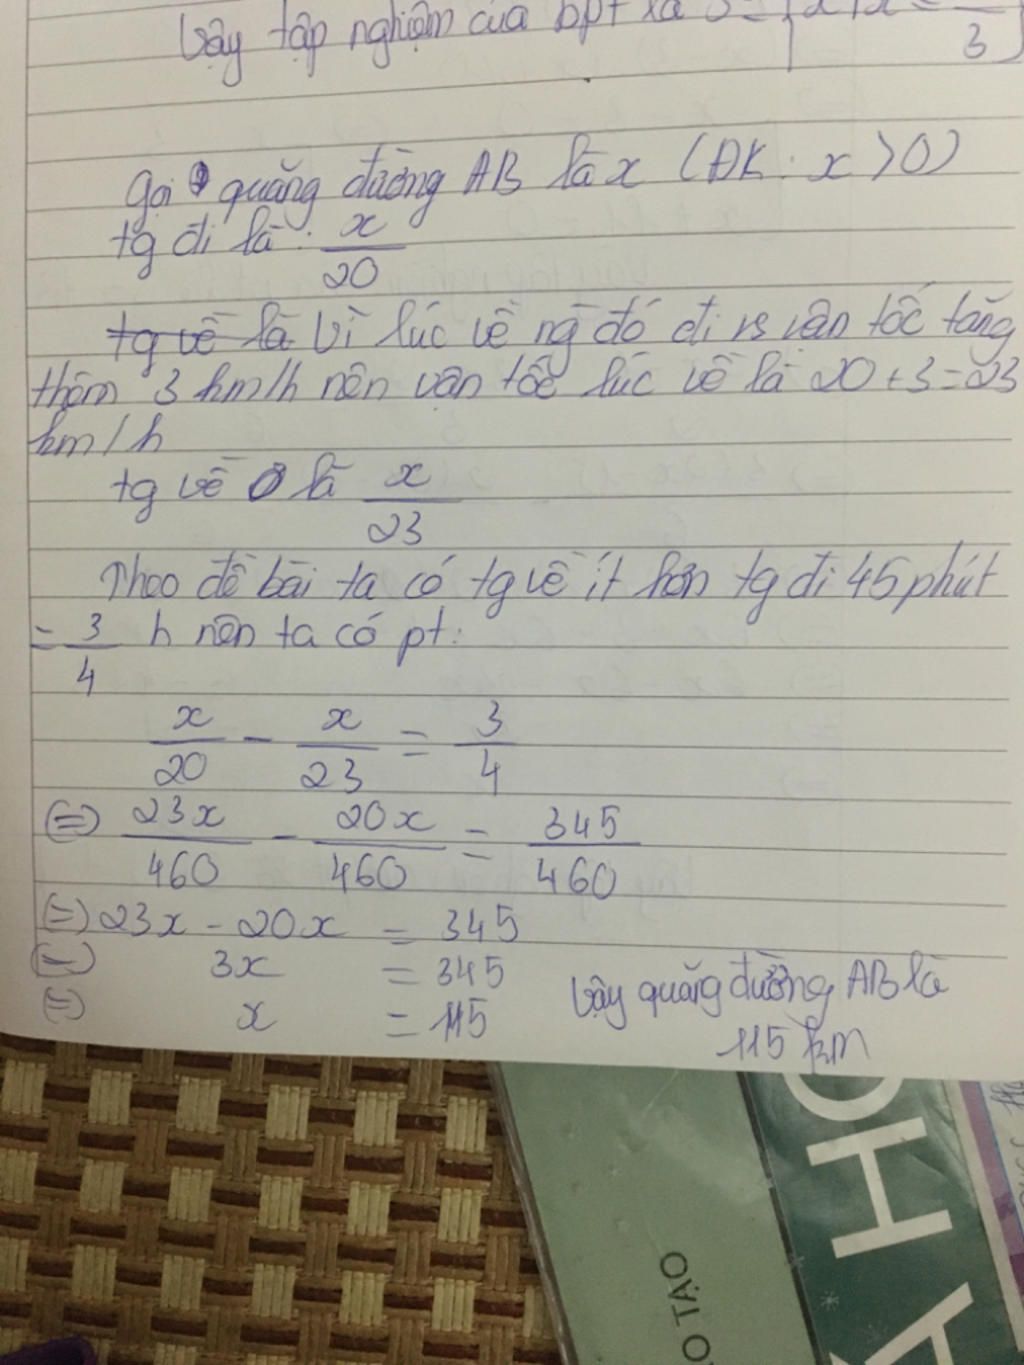 Vậy tập nghiệm của bpt là S = {x | x = 3}
Gọi quãng đường AB là x (ĐK: x > 0)
tg đi là: x/20
tg về là Vì lúc về ng đó đi vs vận tốc tăng
thêm 3 km/h nên vận tốc lúc về là 20 + 3 = 23
km/h
tg về là x/23
Theo đề bài ta có tg về ít hơn tg đi 45 phút
= 3/4 h nên ta có pt:
x/20 - x/23 = 3/4
(=) 23x/460 - 20x/460 = 345/460
(=) 23x - 20x = 345
(=) 3x = 345
(=) x = 115
Vậy quãng đường AB là
115 km
O TẠO
A HO